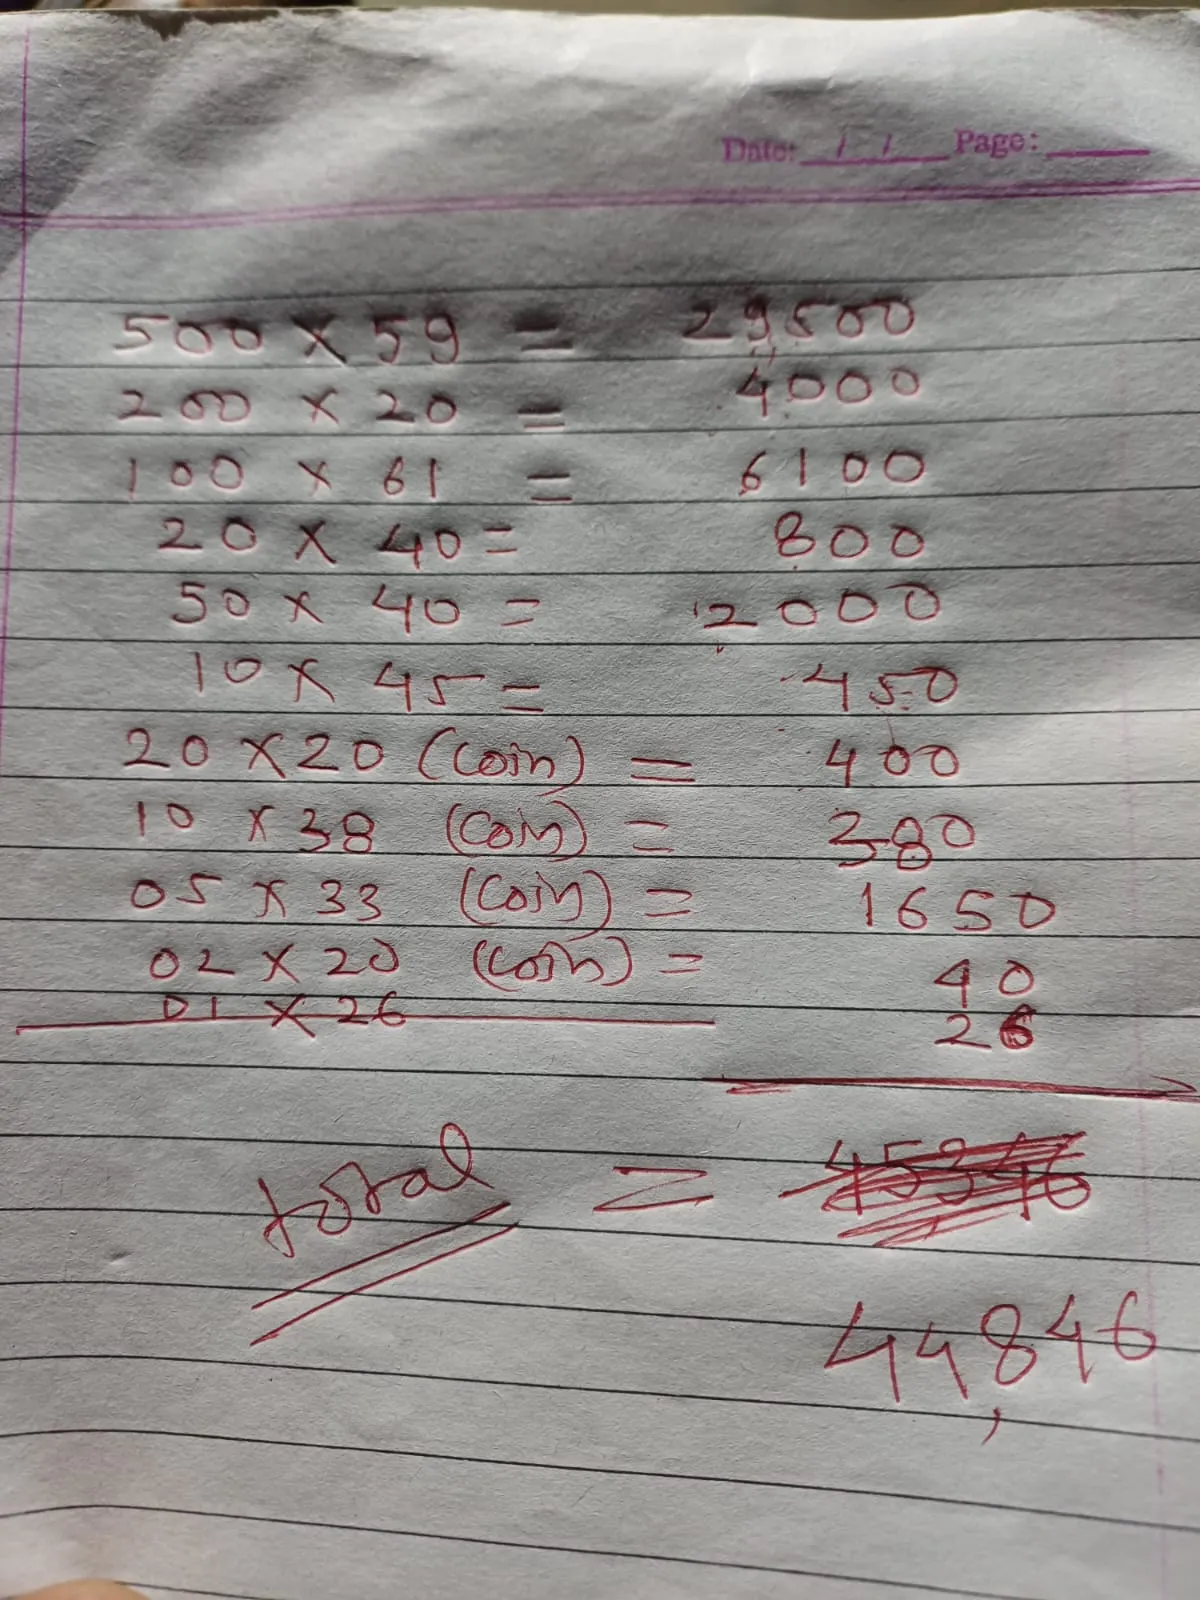 Date: / / Page:
500 × 59 = 29500
200 × 20 = 4000
100 × 61 = 6100
20 × 40 = 800
50 × 40 = 2000
10 × 45 = 450
20 × 20 (coin) = 400
10 × 38 (coin) = 380
05 × 33 (coin) = 1650
02 × 20 (coin) = 40
01 × 26 26
total = 45346
44,846